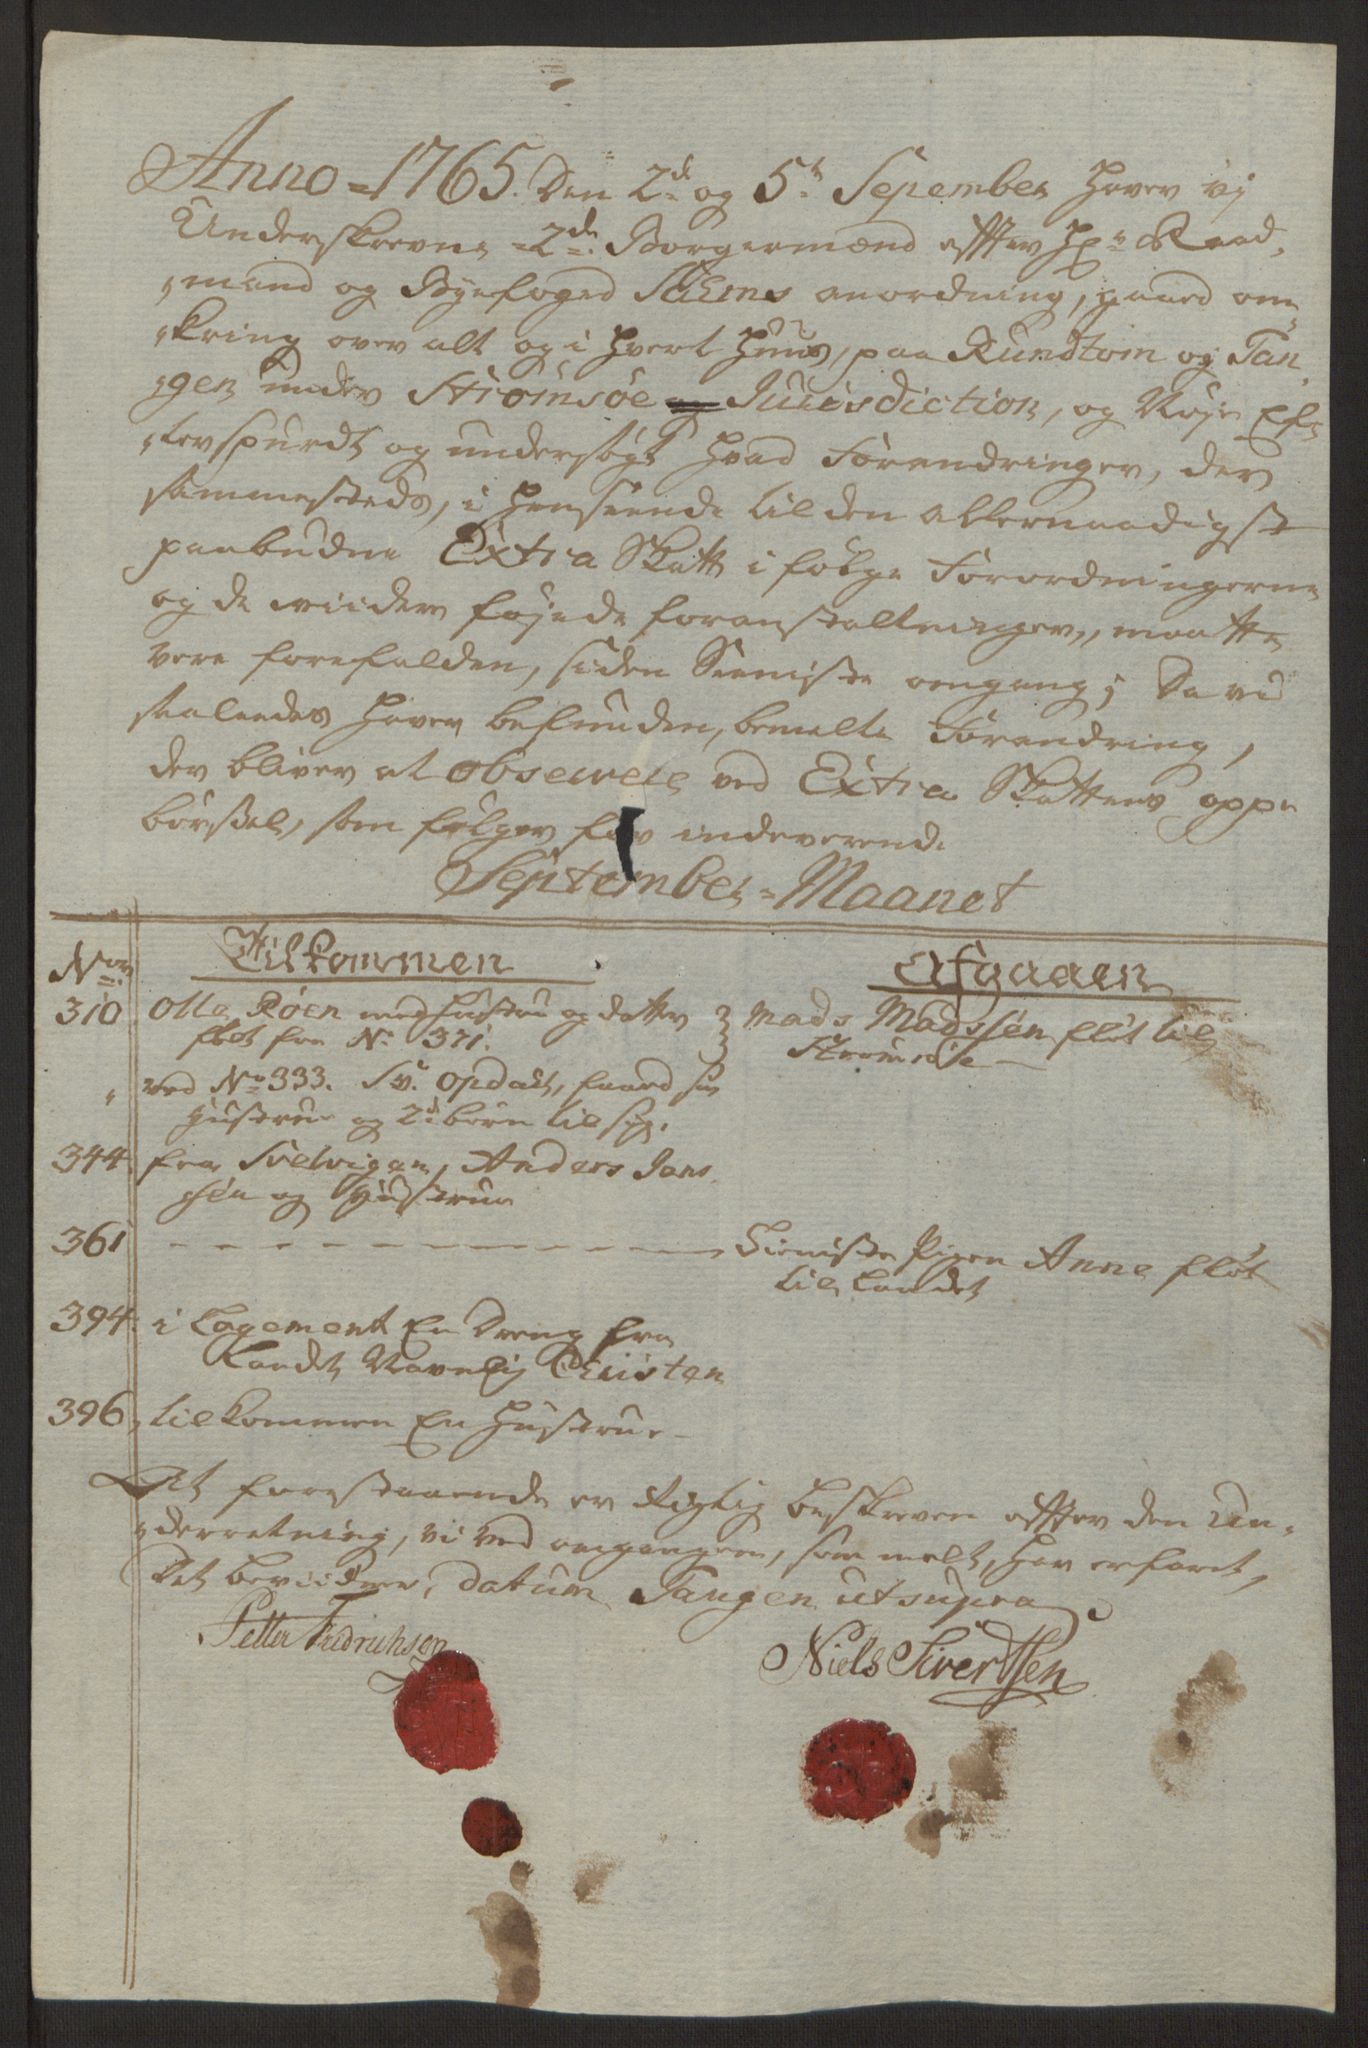 Anno = 1765. Den 2d og 5t Sepember Haver vj
Underskrevne 2de Borgermænd effter Hr Raad,
„mand og Byefoged anordning, gaaed om,
„kring over alt og i Hvert Huus, paa Rundtom og Tan
„gen under Strømsøe Juirisdiction, og Nøje Ef,
„terspurdt og undersøgt Hvad Forandringer, der
sammesteds, i Henseende til den allernaadigst
paabudne Extra Skatt i følge Forordningerne
og de viider føjede foranstalltninger, maatte
vere forefalden, siden Seeniste omgang; Da vi
saaledes Haver befunden, bemelte Forandring,
der bliver at observere ved Extra Skattens oppe
børssel, som følger for indeverende
September = Maanet
Nor Tilkommen Afgaaen
310 Olle Røen med Hustru og datter Mads Madssen fløt til
fløt fra No 371. Strømsøe
„ ved No 333. Sv. Opdal, faaed sin
Hustrue og 2d børn til sig.
344. fra Svelvigen, Anders Jans
sen og Hustrue
361 - - - - - - - - - - - - Tieniste Pigen Anne fløt
til Landet
394. i Logement En Dreng fra
Landet Navnlig Christen
396, tilkommen En Hustrue -
At forestaaende er Rigtig beskreven effter den Un,
„derretning, vi ved omgangen, som melt, Har erfaret,
Det bevidner, datum Tangen ut supra
Petter Fredrichsen
Niels SiverTsen